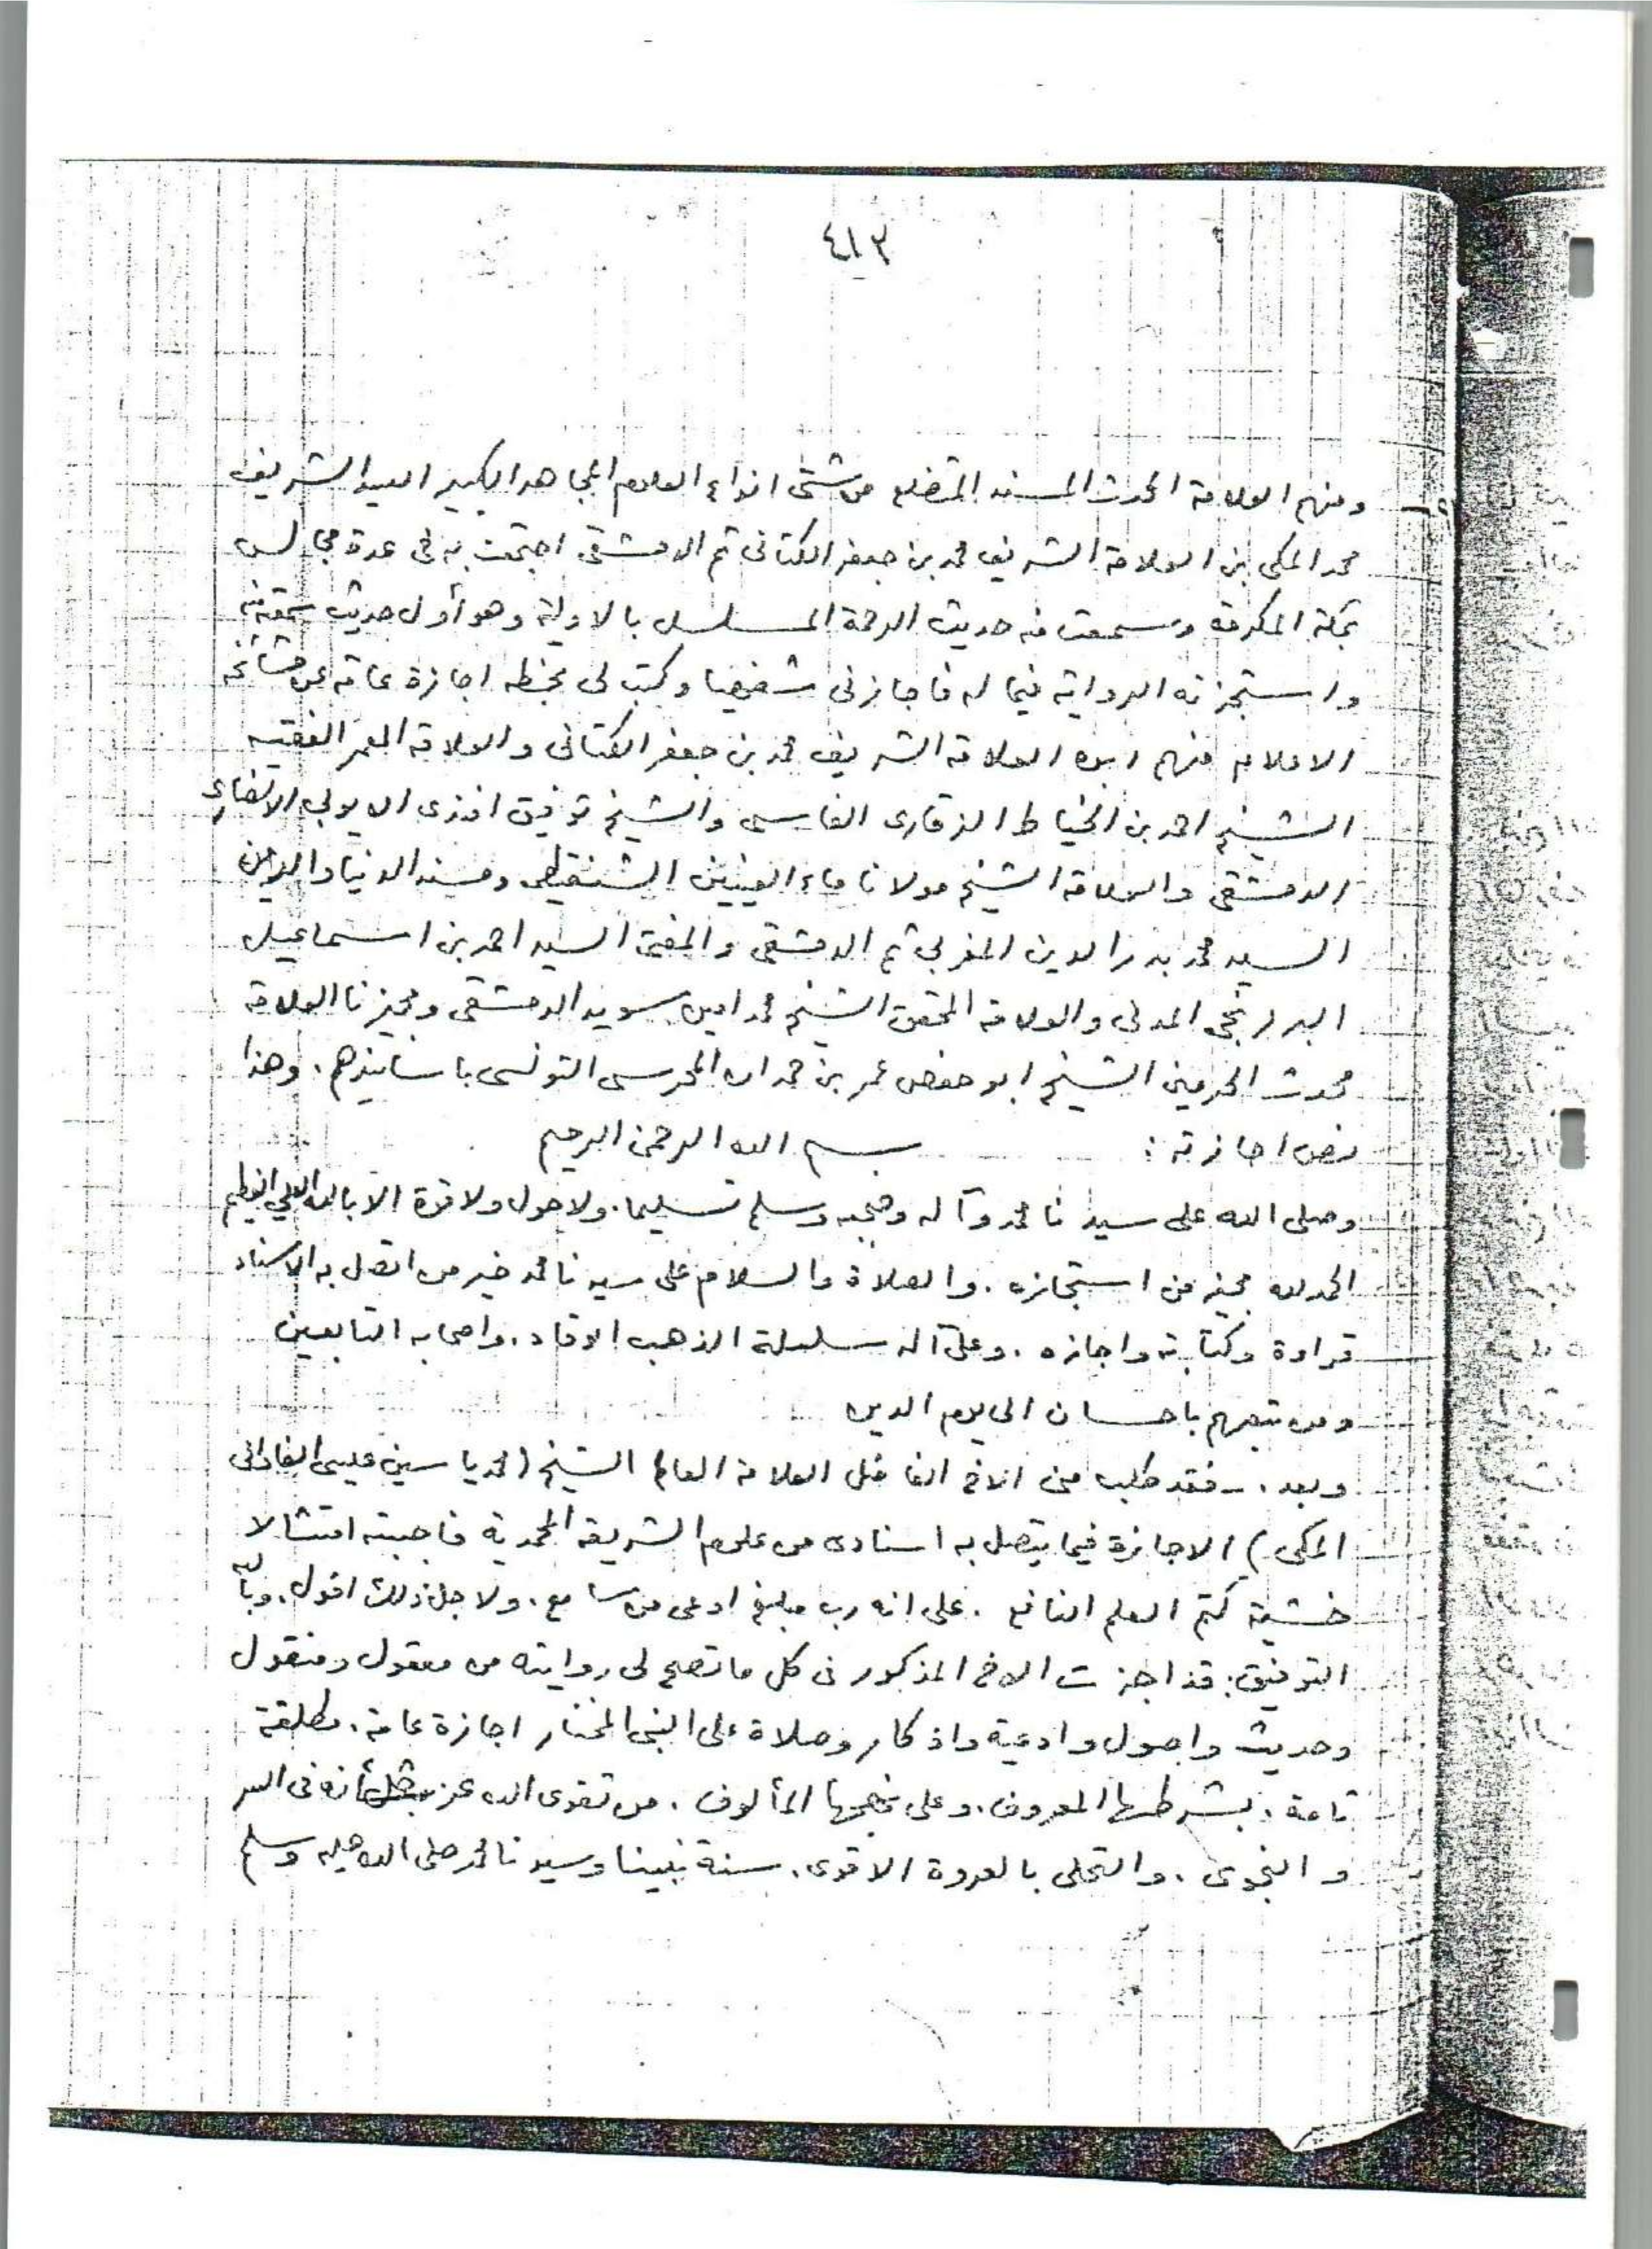 ٤١٣
ومنهم العلامة المحدث المسند المتضلع من شتى انواع العلوم المجاهد الكبير السيد الشريف
محمد المكي بن العلامة الشريف محمد بن جعفر الكتاني ثم الدمشقي اجتمعت به في عدة مجالس
بمكة المكرمة وسمعت منه حديث الرحمة المسلسل بالاولية وهو أول حديث سمعته منه
واستجزته الرواية فيما له فاجازني شفهيا وكتب لي بخطه اجازة عامة عن مشائخه
الاعلام منهم ابوه العلامة الشريف محمد بن جعفر الكتاني والعلامة المعمر الفقيه
الشيخ احمد بن الخياط الزقاري الفاسي والشيخ توفيق افندي الايوبي الانصاري
الدمشقي والعلامة الشيخ مولانا ماء العينين الشنقيطي ومسند الدنيا والدين
السيد محمد بدر الدين المغربي ثم الدمشقي والمفتي السيد احمد بن اسماعيل
البرزنجي المدني والعلامة المحقق الشيخ محمد امين سويد الدمشقي ومجيزنا العلامة
محدث الحرمين الشيخ ابو حفص عمر بن حمدان المحرسي التونسي باسانيدهم. وهذا
نص اجازته : بسم الله الرحمن الرحيم
وصلى الله على سيدنا محمد وآله وصحبه وسلم تسليما. ولا حول ولا قوة الا بالله العلي العظيم
الحمد لله مجيز من استجازه. والصلاة والسلام على سيدنا محمد خير من اتصل به الاسناد
قراءة وكتابة واجازه. وعلى آله سلسلة الذهب الوقاد. واصحابه التابعين
ومن تبعهم باحسان الى يوم الدين
وبعد. ـ فقد طلب مني الاخ الفاضل العلامة العامل الشيخ (محمد ياسين عيسى الفاداني
المكي) الاجازة فيما يتصل به اسنادي من علوم الشريعة المحمدية فاجبته امتثالا
خشية كتم العلم النافع. على انه رب مبلغ اوعى من سامع. ولاجل ذلك اقول. وبالله
التوفيق: قد اجزت الاخ المذكور في كل ما تصح لي روايته من معقول ومنقول
وحديث واصول وادعية واذكار وصلاة على النبي المختار اجازة عامة. مطلقة
تامة. بشرطها المعروف. وعلى نهجها المألوف. من تقوى الله عز شأنه في السر
والنجوى. والتحلى بالعروة الاقوى. سنة نبينا وسيدنا محمد صلى الله عليه وسلم